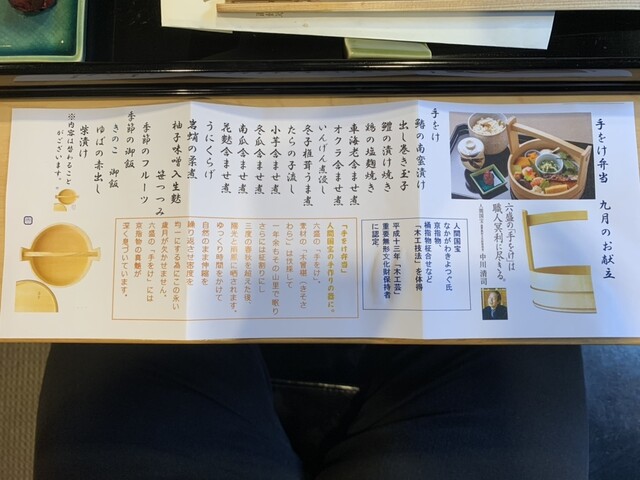 手をけ弁当　九月のお献立
六盛の「手をけ」は
職人冥利に尽きる。
中川清司
手をけ
鱚の南蛮漬け
出し巻き玉子
鰹の漬け焼き
鶏の塩麹焼き
車海老含ませ煮
オクラ含ませ煮
いんげん煮浸し
冬子椎茸うま煮
たらの子流し
小芋含ませ煮
冬瓜含ませ煮
南瓜含ませ煮
花麩含ませ煮
うにくらげ
岩蛸の柔煮
柚子味噌入生麩
笹つつみ
季節のフルーツ
季節の御飯
きのこ御飯
ゆばの赤出し
柴漬け
※内容は替わること
がございます。
人間国宝
なかがわきよつぐ氏
京指物、
桶指物柾合せなど
「木工技法」を体得
平成十三年「木工芸」
重要無形文化財保持者
に認定
「手をけ弁当」
人間国宝の手作りの器に。
六盛の、「手をけ」、
素材の、「木曽椹（きそさ
わら）」は伐採して
一年余もその山里で眠り
さらには柾割りにし
三度の春秋を越えた後、
陽光と雨露に晒されます。
ゆっくり時間をかけて
自然のまま伸縮を
繰り返させ密度を
均一にする為にこの永い
歳月が欠かせません。
六盛の、「手をけ」には
京指物の真髄が
深く息づいています。